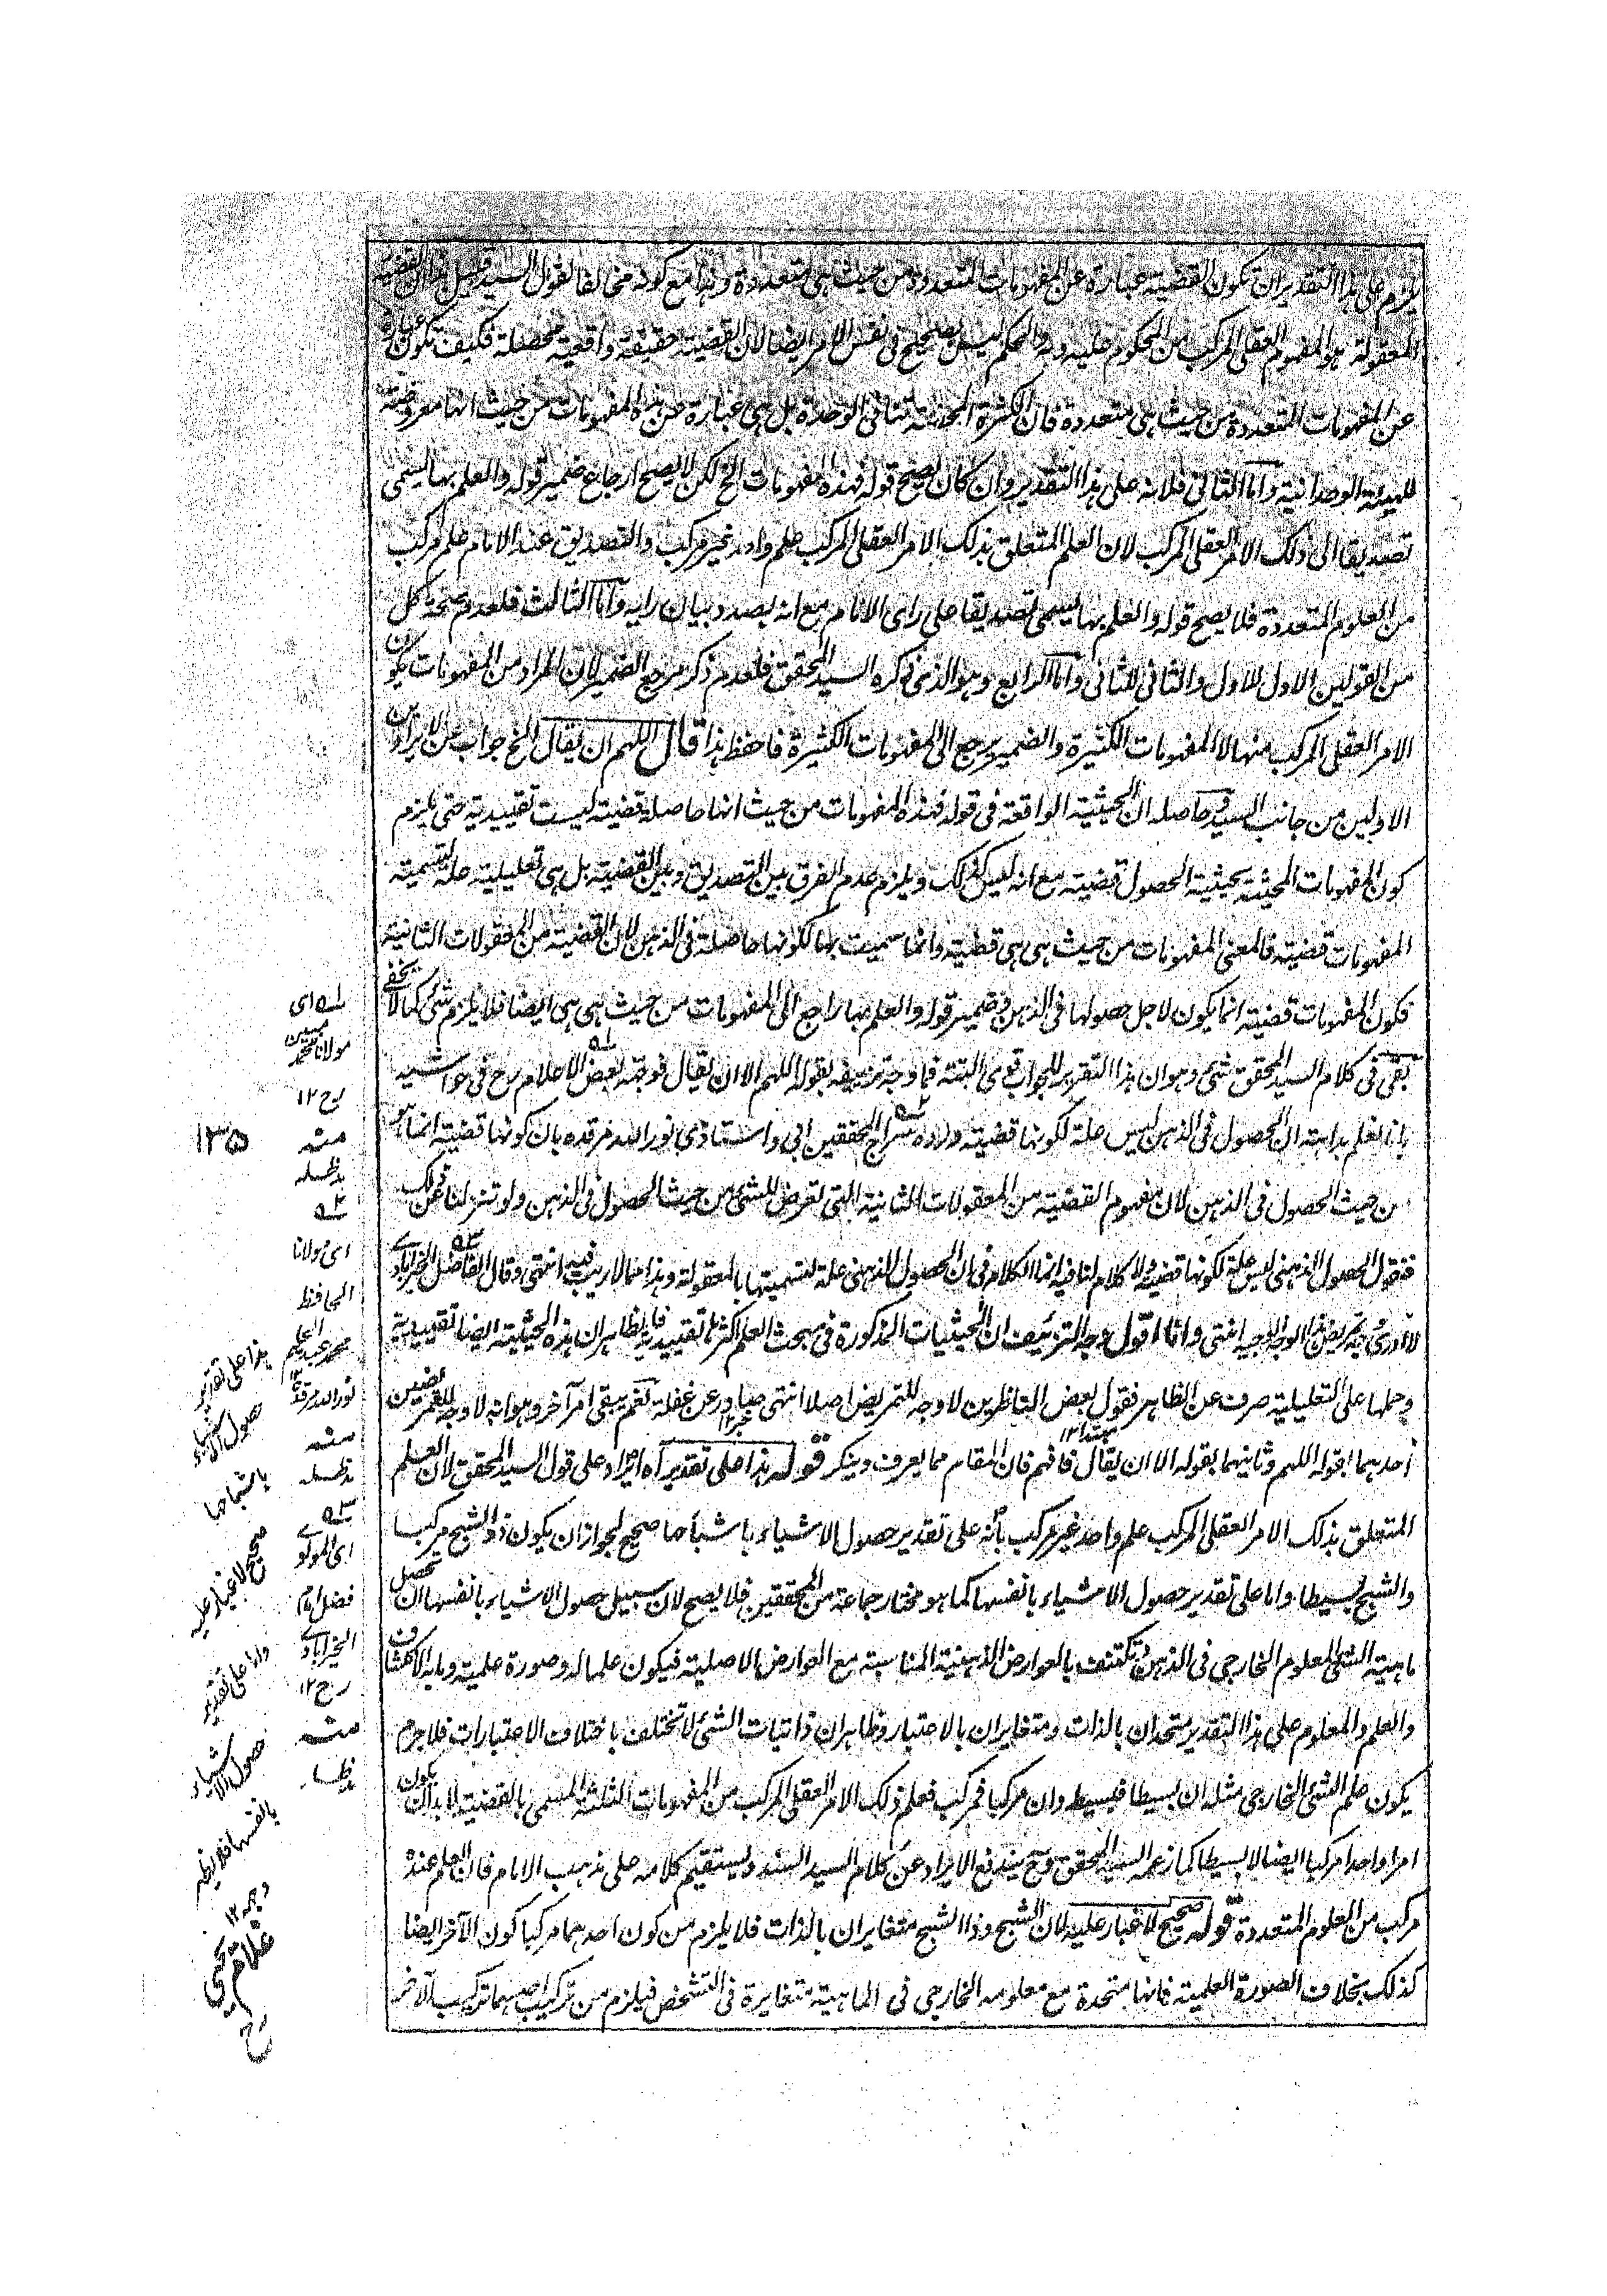 يلزم على هذا التقدير ان تكون القضية عبارة عن المفهومات المتعددة من حيث هى متعددة وهذا مع كونه مخالفا لقول السيد قبيل هذا ان القضية
المعقولة هو المفهوم العقلى المركب من المحكوم عليه وبه والحكم ليس بصحيح فى نفس الامر ايضا لان القضية حقيقة واقعية محصلة فكيف تكون عبارة
عن المفهومات المتعددة من حيث هى متعددة فان الكثرة المحضة تنافى الوحدة بل هى عبارة عن هذه المفهومات من حيث انها معروضة
للهيئة الوحدانية واما الثانى فلانه على هذا التقدير وان كان يصح قوله فهذه المفهومات الخ لكن لا يصح ارجاع ضمير قوله والعلم بها يسمى
تصديقا الى ذلك الامر العقلى المركب لان العلم المتعلق بذلك الامر العقلى المركب علم واحد غير مركب والتصديق عند الامام علم مركب
من العلوم المتعددة فلا يصح قوله والعلم بها يسمى تصديقا على راى الامام مع انه بصدد بيان رايه واما الثالث فلعدم صحة كل
من القولين الاول للاول والثانى للثانى واما الرابع وهو الذى ذكره السيد المحقق فلعدم ذكر مرجع الضمير لان المراد من المفهومات يكون
الامر العقلى المركب منها لا المفهومات الكثيرة والضمير يرجع الى المفهومات الكثيرة فاحفظ هذا قال اللهم ان يقال الخ جواب عن الايرادين
الاولين من جانب السيد حاصله ان الحيثية الواقعة فى قوله فهذه المفهومات من حيث انها حاصلة قضية ليست تقييدية حتى يلزم
كون المفهومات المحيثة بحيثية الحصول قضية مع انه ليس كذلك ويلزم عدم الفرق بين التصديق وبين القضية بل هى تعليلية علة لتسمية
المفهومات قضية فالمعنى المفهومات من حيث هى هى قضية وانما سميت بها لكونها حاصلة فى الذهن لان القضية من المعقولات الثانية
فكون المفهومات قضية انما يكون لاجل حصولها فى الذهن وضمير قوله والعلم بها راجع الى المفهومات من حيث هى هى ايضا فلا يلزم شئ كما لا يخفى
بقى فى كلام السيد المحقق شئ وهو ان هذا التقرير للجواب قوى البتة فما وجه تزييفه بقوله اللهم الا ان يقال فوجهه بعض الاعلام رح فى حواشيه
بانا نعلم بداهته ان الحصول فى الذهن ليس علة لكونها قضية ورده سراج المحققين ابى واستاذى نور الله مرقده بان كونها قضية انما هو
من حيث الحصول فى الذهن لان مفهوم القضية من المعقولات الثانية التى تعرض للشئ من حيث الحصول فى الذهن ولو تنزلنا عن ذلك
فنقول الحصول الذهنى ليس علة لكونها قضية ولا كلام لنا فيه انما الكلام فى ان الحصول الذهنى علة لتسميتها بالمعقولة وهذا مما لا ريب فيه انتهى وقال الفاضل الخيرابادى
لا ادرى وجه تمريض هذا الوجه الوجيه انتهى وانا اقول وجه التزييف ان الحيثيات المذكورة فى مبحث العلم اكثرها تقييدية فالظاهر ان هذه الحيثية ايضا تقييدية
وحملها على التعليلية صرف عن الظاهر فقول بعض الناظرين لا وجه للتمريض اصلا انتهى صادر عن غفلة نعم يبقى امر آخر وهو انه لا وجه للتمريضين
احدهما بقوله اللهم وثانيهما بقوله الا ان يقال فافهم فان المقام مما يعرف وينكر قوله هذا على تقدير آه ايراد على قول السيد المحقق لان العلم
المتعلق بذلك الامر العقلى المركب علم واحد غير مركب بانه على تقدير حصول الاشياء باشباحها صحيح لجواز ان يكون ذو الشبح مركبا
والشبح بسيطا واما على تقدير حصول الاشياء بانفسها كما هو مختار جماعة من المحققين فلا يصح لان سبيل حصول الاشياء بانفسها ان تحصل
ماهية الشئ المعلوم الخارجى فى الذهن وتكتنف بالعوارض الذهنية المناسبة مع العوارض الاصلية فيكون علما له وصورة علمية وما به الانكشاف
والعلم والمعلوم على هذا التقدير متحدان بالذات ومتغايران بالاعتبار وظاهر ان ذاتيات الشئ لا تختلف باختلاف الاعتبارات فلا جرم
يكون علم الشئ الخارجى مثله ان بسيطا فبسيط وان مركبا فمركب فعلم ذلك الامر العقلى المركب من المفهومات الثلثة المسمى بالقضية لابد ان يكون
امرا واحدا مركبا ايضا لا بسيطا كما زعم السيد المحقق وح يندفع الايراد عن كلام السيد السند ويستقيم كلامه على مذهب الامام فان العلم عنده
مركب من العلوم المتعددة قوله صحيح لا غبار عليه لان الشبح وذا الشبح متغايران بالذات فلا يلزم من كون احدهما مركبا كون الآخر ايضا
كذلك بخلاف الصورة العلمية فانها متحدة مع معلومه الخارجى فى الماهية متغايرة فى التشخص فيلزم من تركيب احدهما تركيب الآخر
له اى
مولانا محمد مبين
رح ١٢
منه
مد ظله
١٣٥
اى مولانا
الحافظ
محمد عبد الحليم
نور الله مرقده
منه
مد ظله
اى المولوى
فضل امام
الخيرابادى
رح ١٢
منه
مد ظله
هذا على تقدير
حصول الاشياء
باشباحها
صحيح لا غبار عليه
واما على تقدير
حصول الاشياء
بانفسها فلا يظهر
وجهه ١٢
غلام يحيى
رح